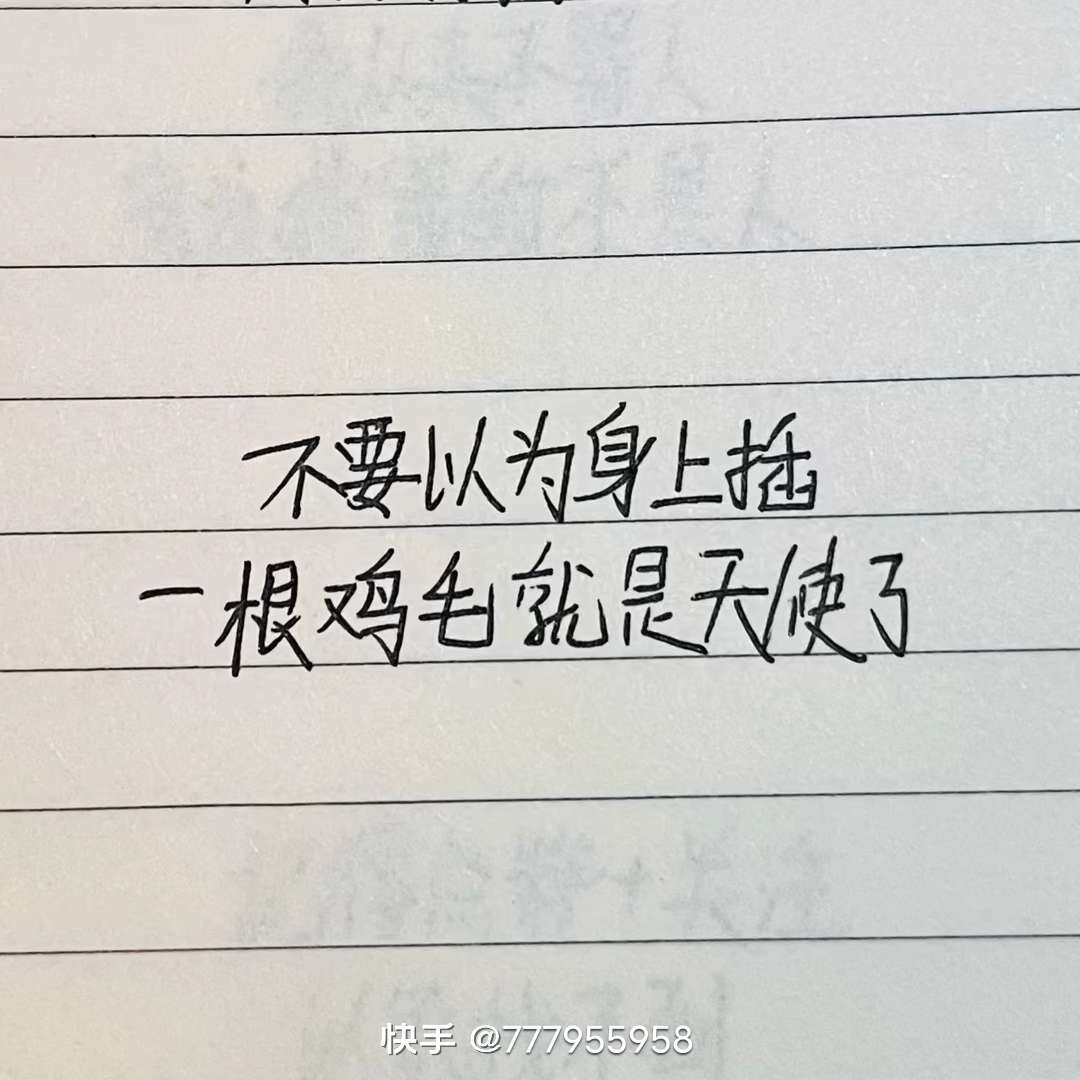 不要以为身上插
一根鸡毛就是天使了
快手 @777955958